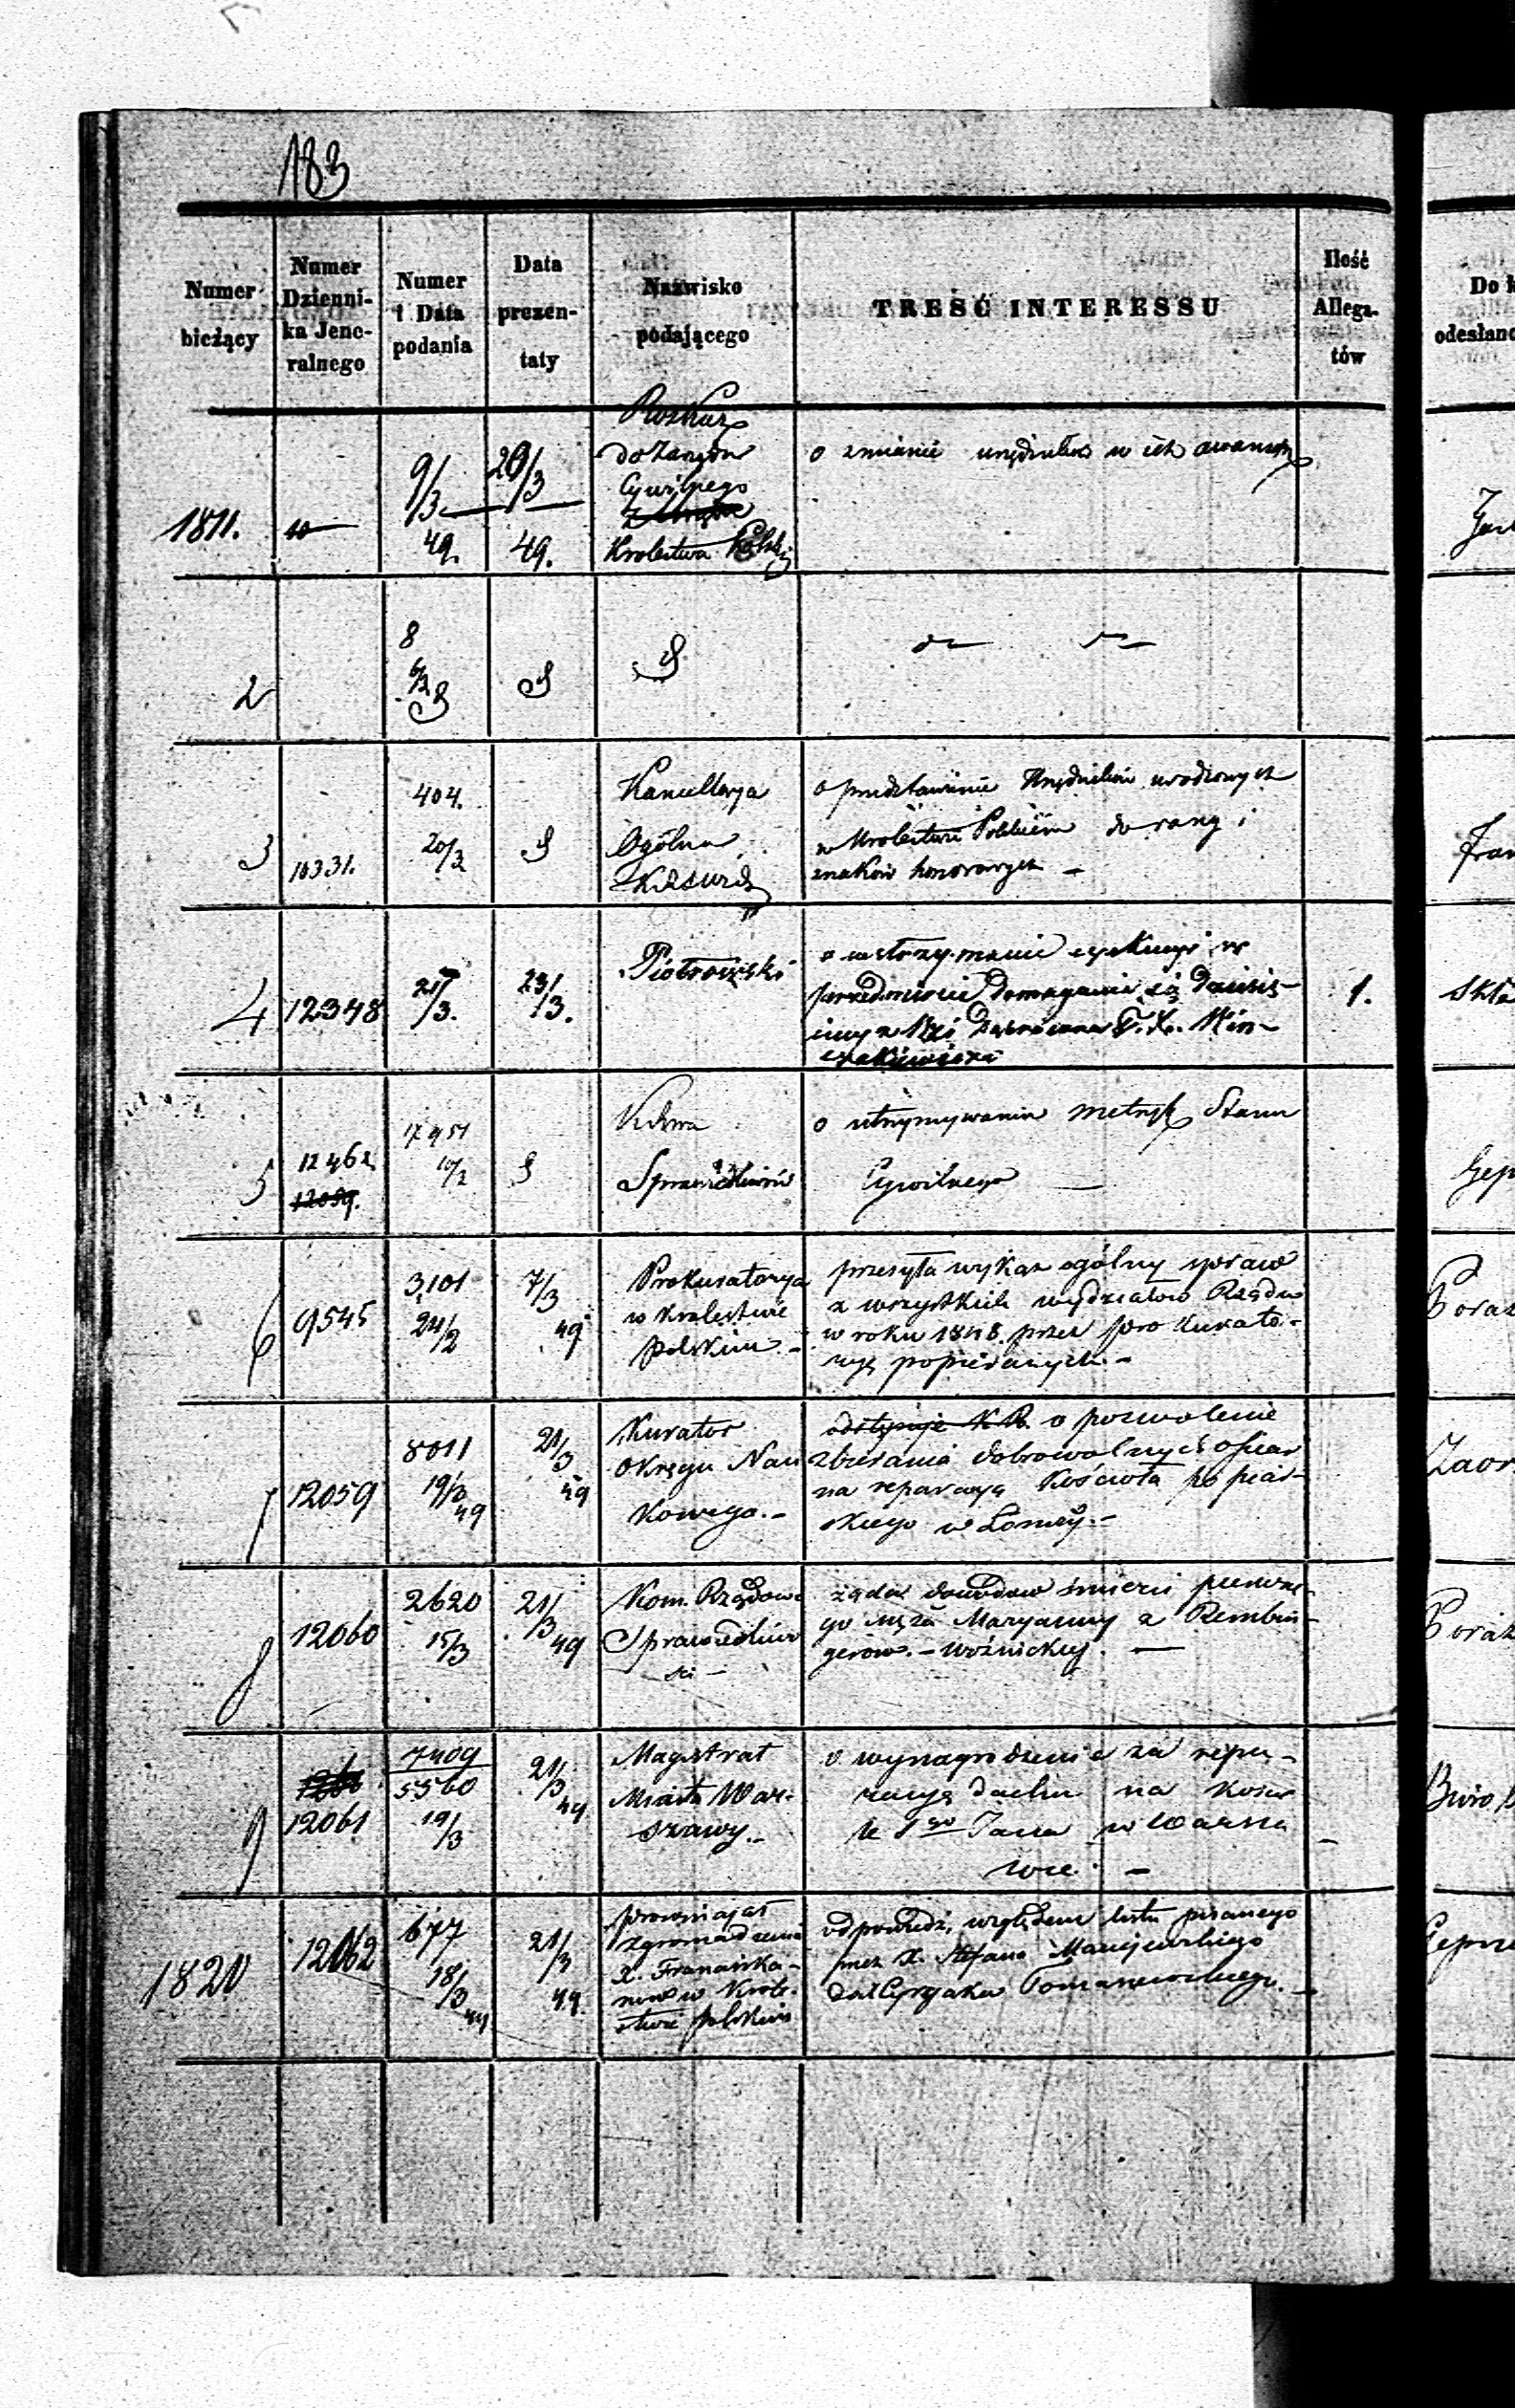 183
Numer
bieżący
Numer
Dzienni-
ka Jene-
ralnego
Numer
i Data
podania
Data
prezen-
taty
Nazwisko
podającego
TREŚĆ INTERESSU
Ilość
Allega-
tów
odesłano
1811.
9/3
49.
20/3
49.
Rozkaz
do Zarządu
Cywilnego
Krolestwa Polski
o zmianie urzędników w ich awansie
2
8
6/3
3
10331.
404.
20/3
Kancellarya
Ogólna
o przedstawienie Urzędników urodzonych
w Krolestwie Polskiem do rang i
znaków honorowych —
4
12348
21/3.
23/3.
Piotrowski
o wstrzymanie exekucyi w
przedmiocie domagania się
1.
5
12462
12059.
17951
10/3
Sprawiedliwości
o utrzymywaniu metryk Stanu
Cywilnego —
6
9545
3,101
24/2
7/3
49
Prokuratorya
w Krolestwie
Polskim.-
przesyła wykaz ogólny spraw
z wszystkich wydziałow Rządu
w roku 1848. przez prokurato-
ryę popieranych.-
7
12059
8011
19/3
49
21/3
49
Kurator
Okręgu Nau
kowego.-
odstępuje K.R. o pozwolenie
zbierania dobrowolnych ofiar
na reparacyą Kościoła po pijar-
skiego w Łomży.-
8
12060
2620
15/3
21/3
49
Kom. Rządowa
Sprawiedliwo
ści -
żąda dowodow śmierci pierwsze-
go męża Maryanny z Rembin-
gerów.- Woźnickiej. —
9
12061
7409
5560
19/3
21/3
49
Magistrat
Miasta War-
szawy.-
o wynagrodzenie za repa-
racyę dachu na Kosce
le Sgo Jana w Warsza
wie. -
1820
12062
677
18/3
49
21/3
49.
prowincjał
zgromadzenia
X. Franciszka-
nów w Krole-
stwie polskim
odpowiedź, względem listu pisanego
przez X. Stefana Maciejewskiego
do X Cypryaka Tomaszewskiego.-